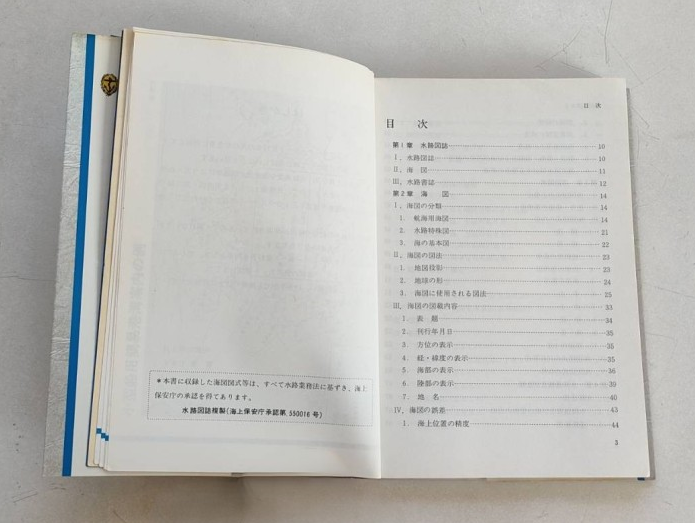 ＊本書に収録した海図図式等は、すべて水路業務法に基ずき、海上
保安庁の承認を得てあります。
水路図誌複製(海上保安庁承認第 550016 号)
目 次
目 次
第1章 水路図誌 10
Ⅰ. 水路図誌 10
Ⅱ. 海 図 11
Ⅲ. 水路書誌 12
第2章 海 図 14
Ⅰ. 海図の分類 14
1. 航海用海図 14
2. 水路特殊図 21
3. 海の基本図 22
Ⅱ. 海図の図法 23
1. 地図投影 23
2. 地球の形 24
3. 海図に使用される図法 25
Ⅲ. 海図の図載内容 33
1. 表 題 34
2. 刊行年月日 34
3. 方位の表示 35
4. 経・緯度の表示 35
5. 海部の表示 36
6. 陸部の表示 39
7. 地 名 40
Ⅳ. 海図の誤差 43
1. 海上位置の精度 44
3